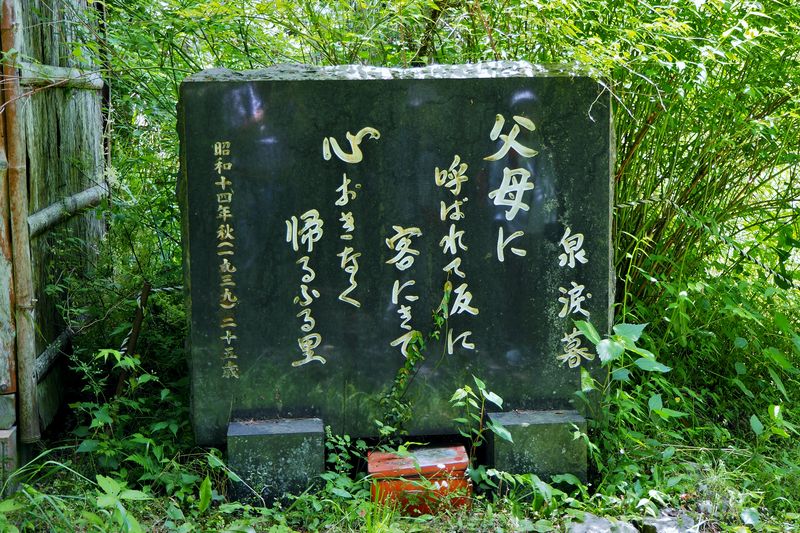 泉涙暮
父母に
呼ばれて反に
客にきて
心おきなく
帰るふる里
昭和十四年秋(一九三九)二十五歳